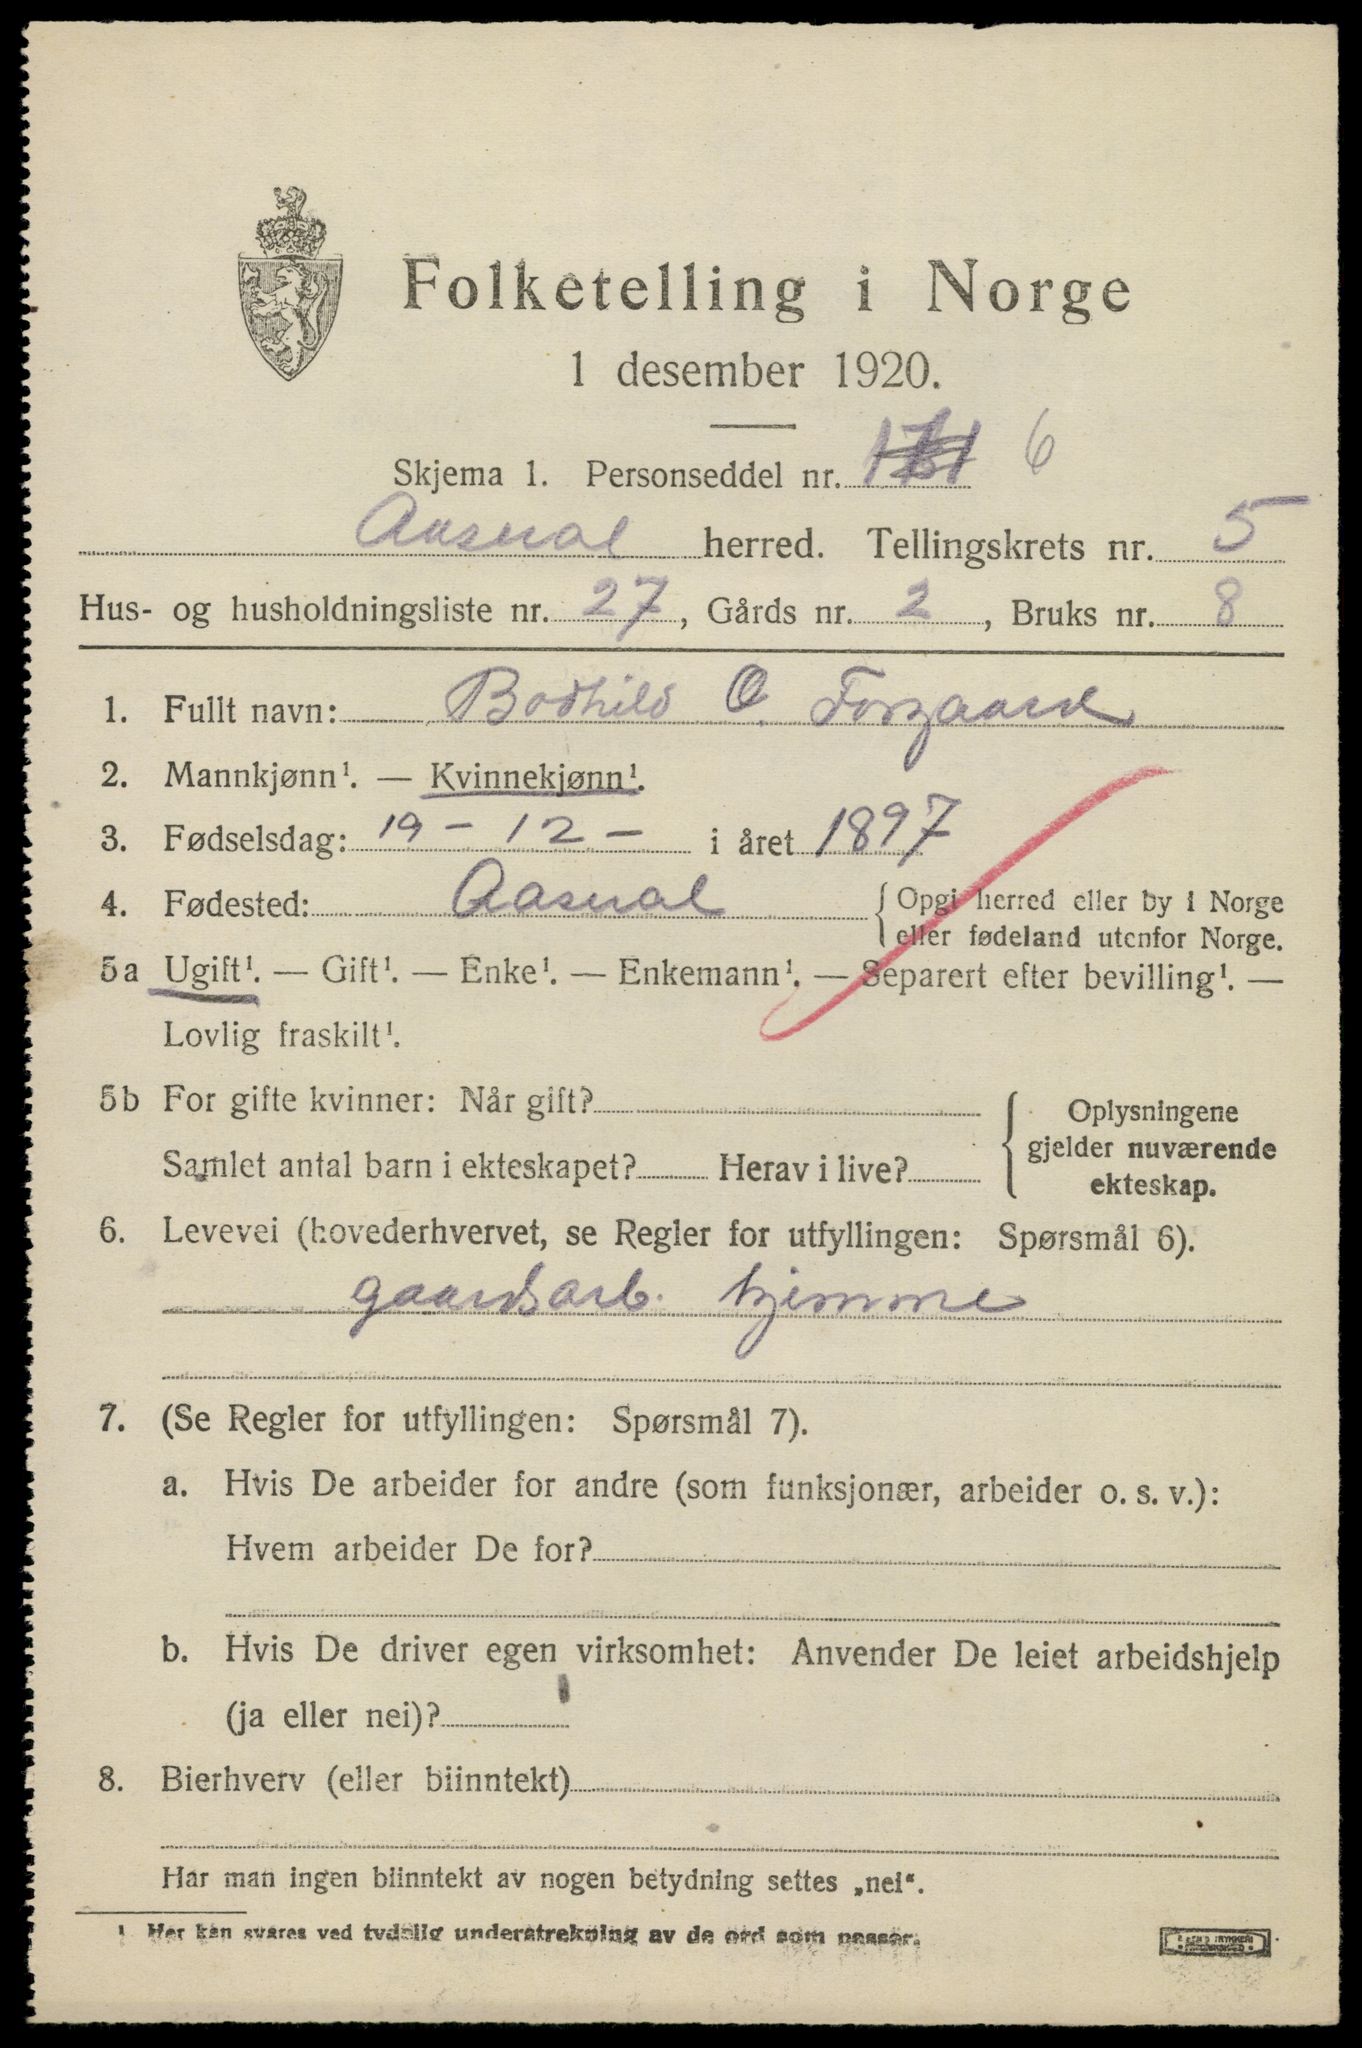 Folketelling i Norge
1 desember 1920.
Skjema 1. Personseddel nr. 6
Aaseral herred. Tellingskrets nr. 5
Hus- og husholdningsliste nr. 27, Gårds nr. 2, Bruks nr. 8
1. Fullt navn: Bodhild O. Forgaard
2. Mannkjønn¹. — Kvinnekjønn¹.
3. Fødselsdag: 19 - 12 - i året 1897
4. Fødested: Aaseral {Opgi herred eller by i Norge
eller fødeland utenfor Norge.
5a Ugift¹. — Gift¹. — Enke¹. — Enkemann¹. — Separert efter bevilling¹. —
Lovlig fraskilt¹.
5b For gifte kvinner: Når gift?
Samlet antal barn i ekteskapet? Herav i live?
{Oplysningene
gjelder nuværende
ekteskap.
6. Levevei (hovederhvervet, se Regler for utfyllingen: Spørsmål 6).
gaardsarb. hjemme
7. (Se Regler for utfyllingen: Spørsmål 7).
a. Hvis De arbeider for andre (som funksjonær, arbeider o. s. v.):
Hvem arbeider De for?
b. Hvis De driver egen virksomhet: Anvender De leiet arbeidshjelp
(ja eller nei)?
8. Bierhverv (eller biinntekt)
Har man ingen biinntekt av nogen betydning settes „nei“.
¹ Her kan svares ved tydelig understrekning av de ord som passer.